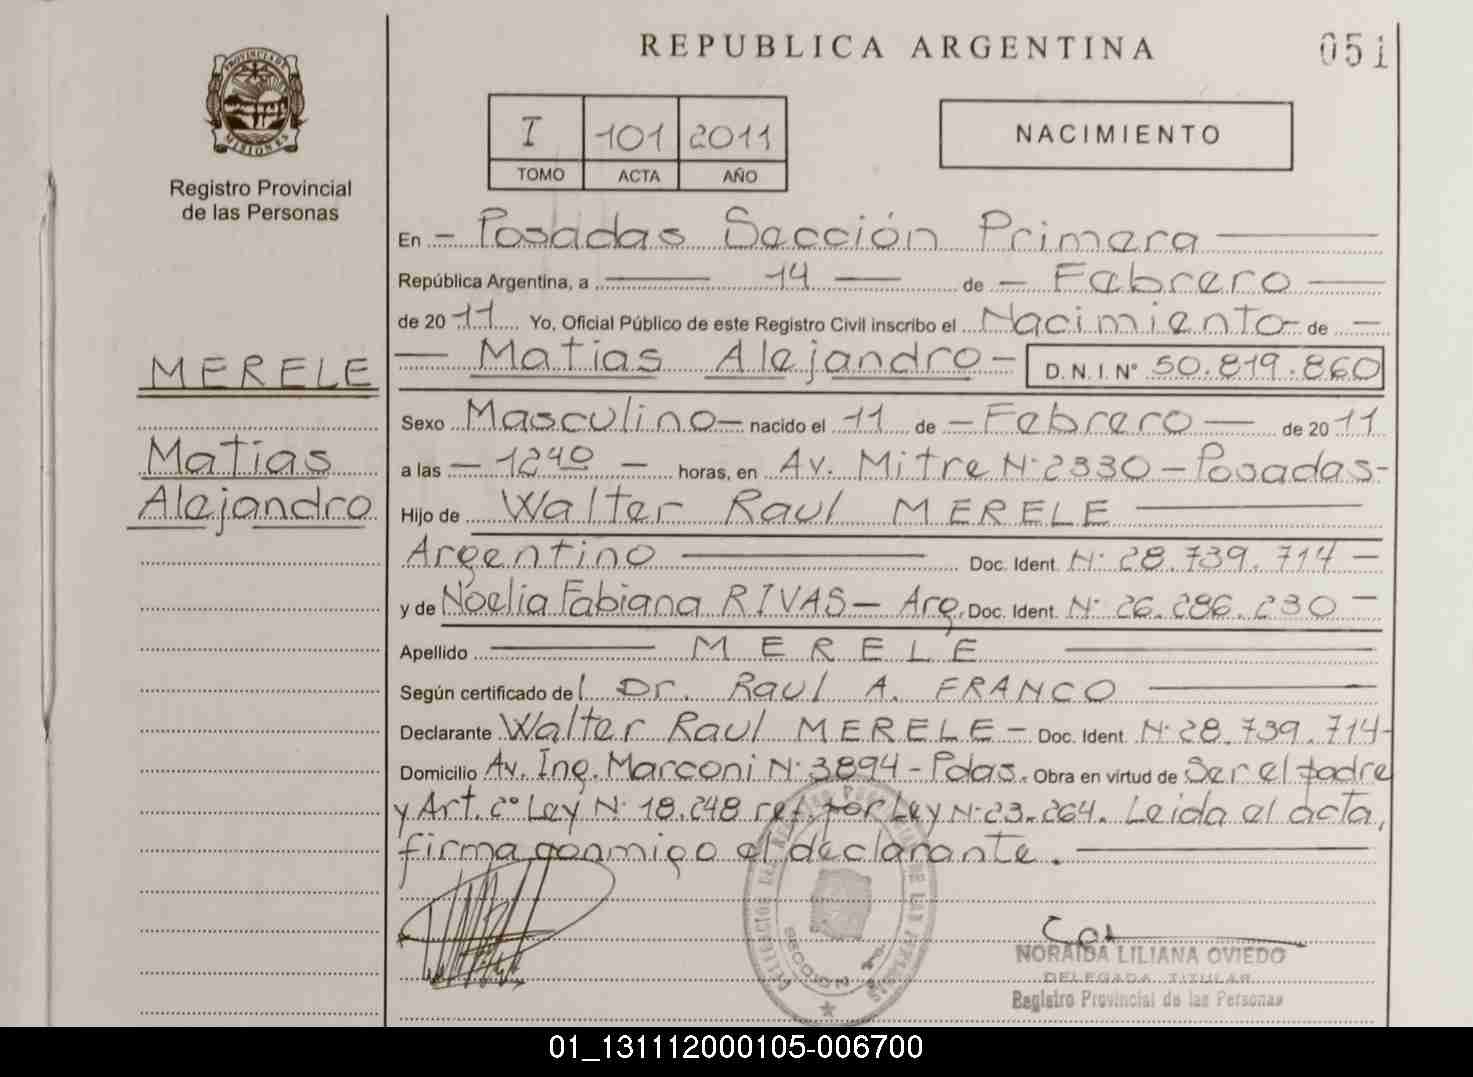 REPUBLICA ARGENTINA
051
PROVINCIA DE MISIONES
Registro Provincial
de las Personas
I 101 2011
TOMO ACTA AÑO
NACIMIENTO
En - Posadas Sección Primera
República Argentina, a 14 de - Febrero
de 2011 Yo, Oficial Público de este Registro Civil inscribo el Nacimiento - de -
- Matias Alejandro - D.N.I. N° 50.819.860
MERELE
Matias
Alejandro
Sexo Masculino - nacido el 11 de - Febrero - de 2011
a las - 1240 - horas, en Av. Mitre N° 2330 - Posadas -
Hijo de Walter Raul MERELE
Argentino Doc. Ident. N° 28.739.714 -
y de Noelia Fabiana RIVAS - Arg. Doc. Ident. N° 26.286.230 -
Apellido MERELE
Según certificado del Dr. Raul A. FRANCO
Declarante Walter Raul MERELE - Doc. Ident. N° 28.739.714 -
Domicilio Av. Ing. Marconi N° 3894 - Pdas. Obra en virtud de Ser el padre
y Art. 2° Ley N° 18.248 ref. por Ley N° 23.264. Leida el acta,
firma conmigo el declarante.
SECCION 1ª
NORAIDA LILIANA OVIEDO
DELEGADA TITULAR
Registro Provincial de las Personas
01_131112000105-006700